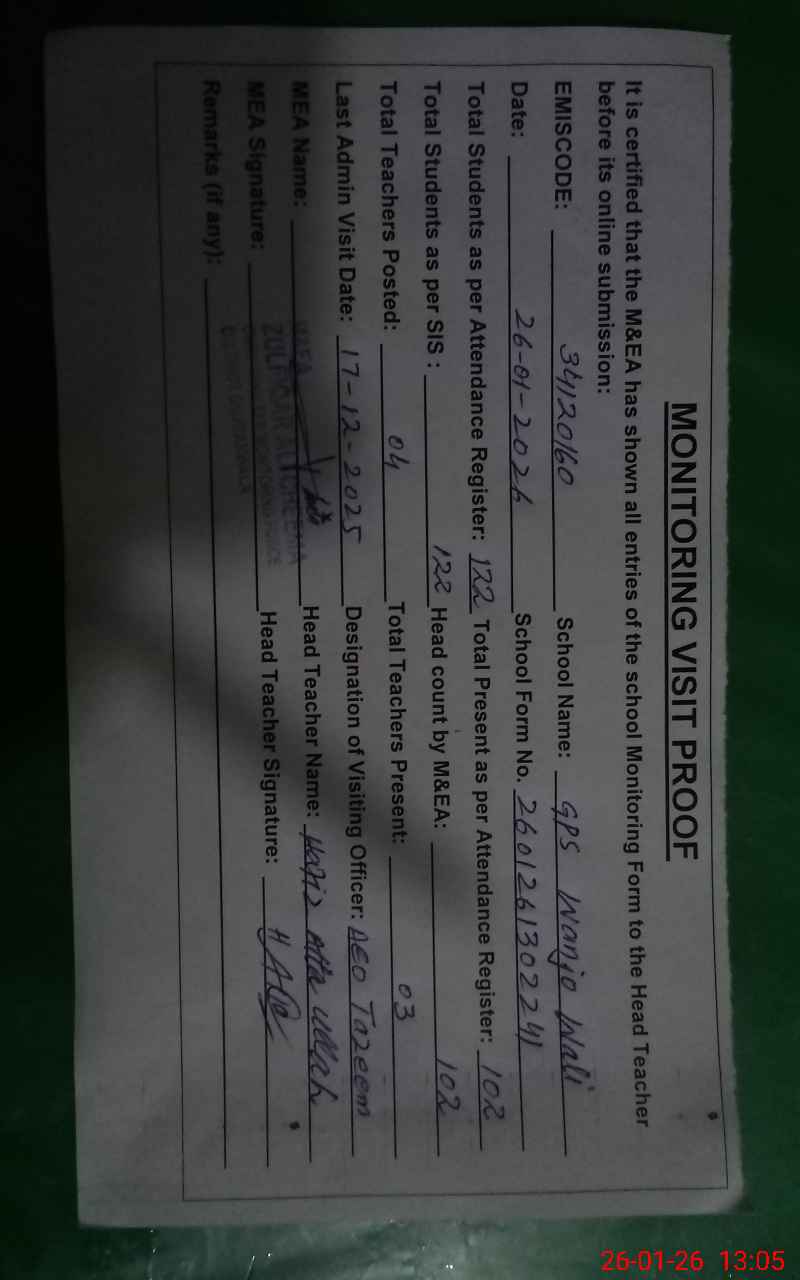 MONITORING VISIT PROOF
It is certified that the M&EA has shown all entries of the school Monitoring Form to the Head Teacher
before its online submission:
EMISCODE: 34120160 School Name: GPS Wanjo Wali
Date: 26-01-2026 School Form No. 2601261302241
Total Students as per Attendance Register: 122 Total Present as per Attendance Register: 102
Total Students as per SIS : 122 Head count by M&EA: 102
Total Teachers Posted: 04 Total Teachers Present: 03
Last Admin Visit Date: 17-12-2025 Designation of Visiting Officer: AEO Tazeem
MEA Name: Head Teacher Name: Hafiz Atta Ullah
MEA Signature: Head Teacher Signature:
ZULFIQAR ALI CHEEMA
Remarks (if any):
26-01-26 13:05